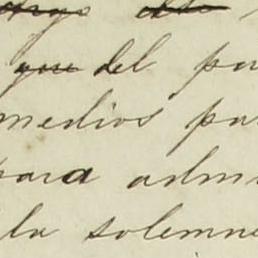 que del pa
medios pa
para adm
la solemne